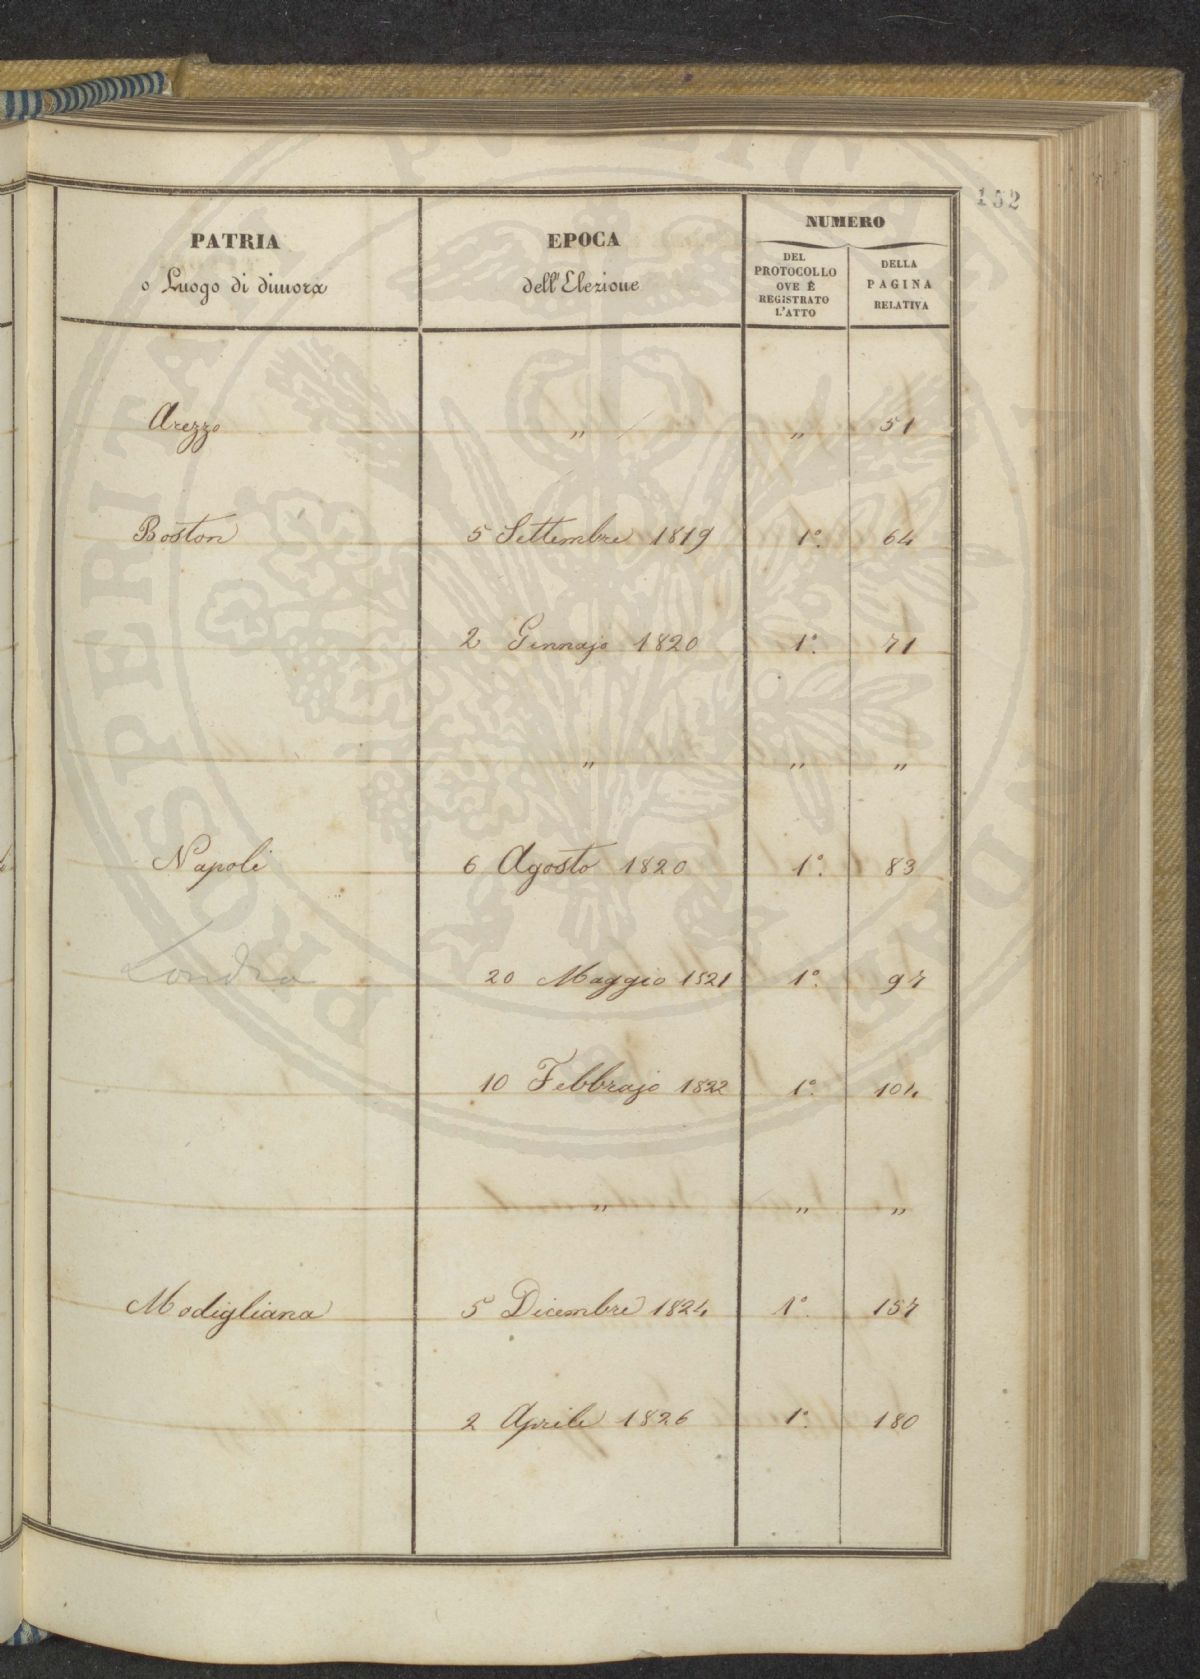 152
PATRIA
o Luogo di dimora
EPOCA
dell'Elezione
NUMERO
DEL
PROTOCOLLO
OVE È
REGISTRATO
L'ATTO
DELLA
PAGINA
RELATIVA
Arezzo " " 51
Boston 5 Settembre 1819 1° 64
2 Gennajo 1820 1° 71
" " "
Napoli 6 Agosto 1820 1° 83
Londra 20 Maggio 1821 1° 97
10 Febbrajo 1822 1° 104
" " "
Modigliana 5 Dicembre 1824 1° 157
2 Aprile 1826 1° 180
PROSPERITATI PUBLICAE